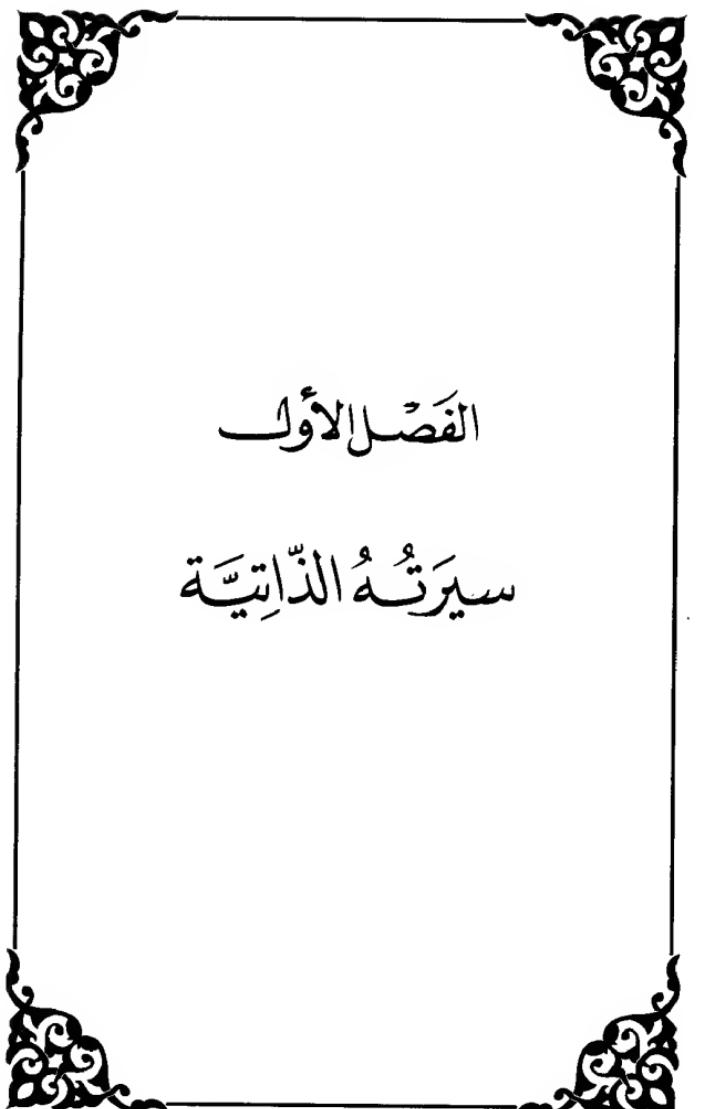 الفَصْل الأول
سيَرتُهُ الذَّاتِيَّة